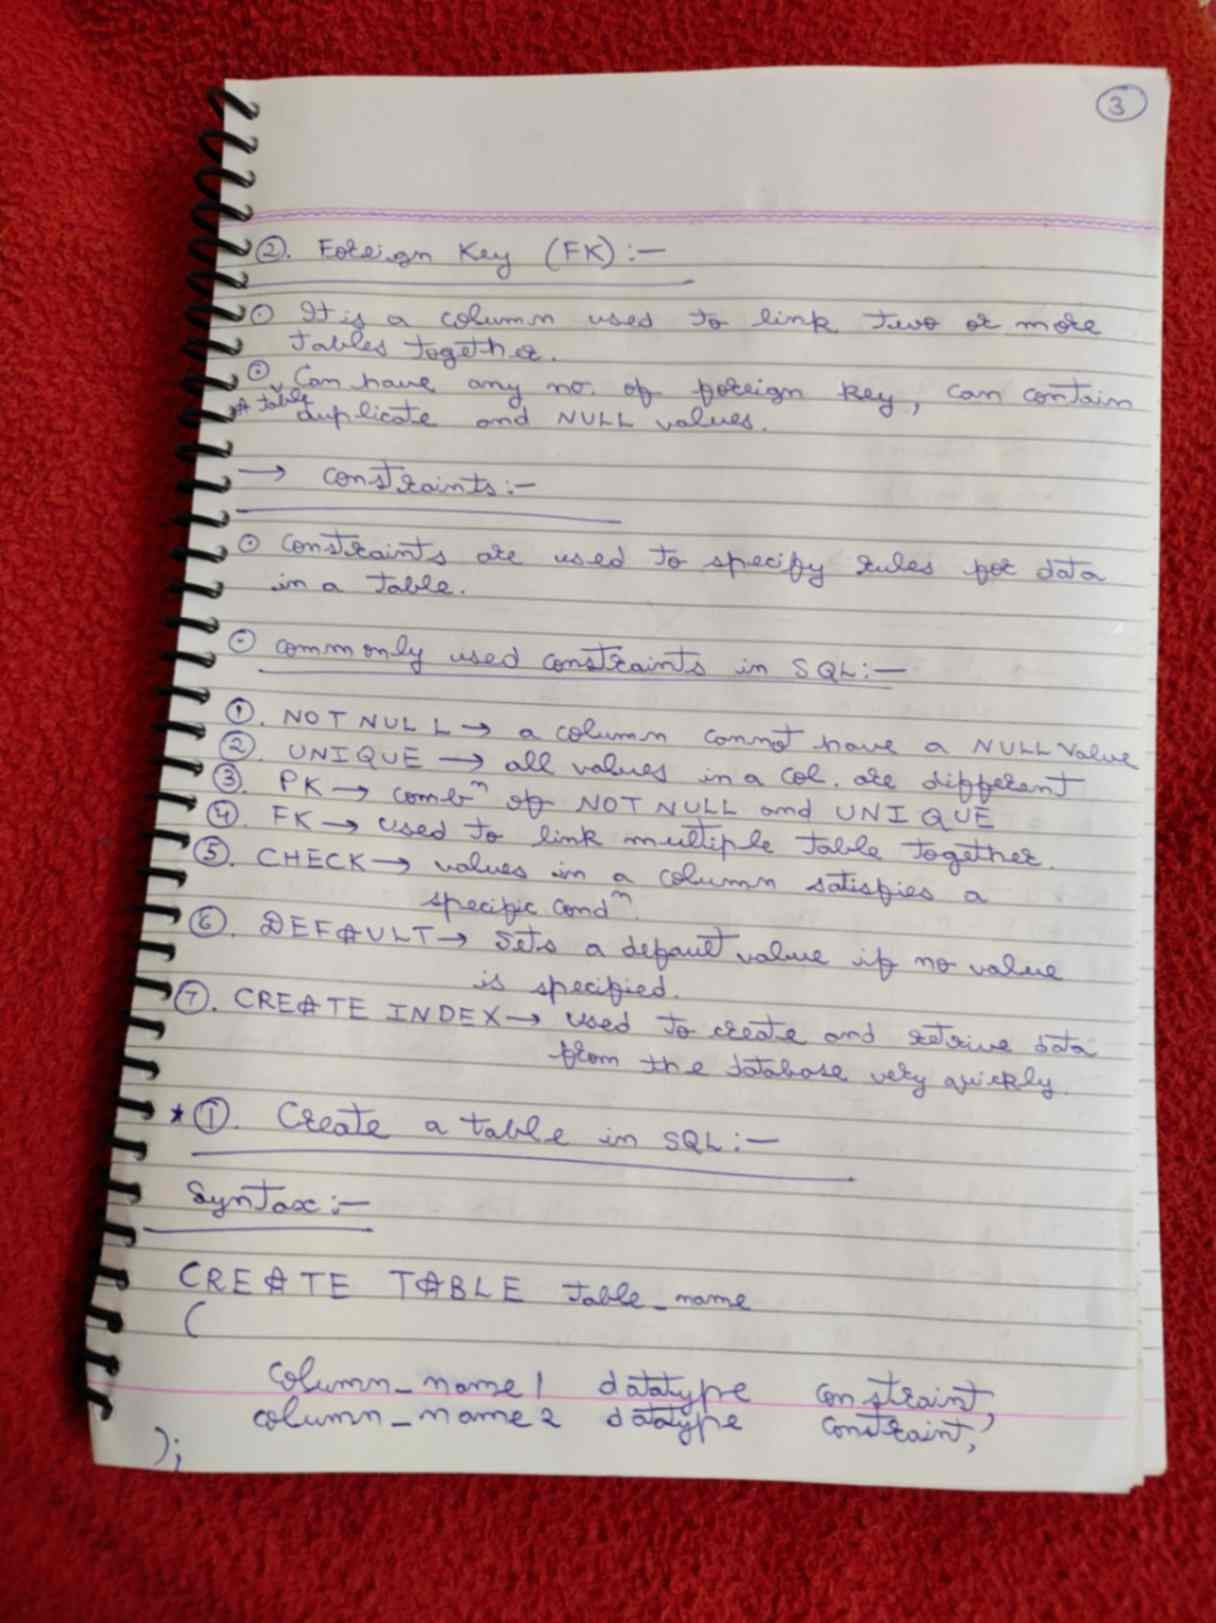 3
②. Foreign Key (FK) :-
⊙ It is a column used to link two or more
tables together.
⊙ Can have any no. of foreign key, can contain
A table
duplicate and NULL values.
→ constraints :-
⊙ Constraints are used to specify rules for data
in a table.
⊙ commonly used constraints in SQL :-
①. NOT NULL → a column cannot have a NULL value
②. UNIQUE → all values in a col. are different
③. PK → combⁿ of NOT NULL and UNIQUE
④. FK → used to link multiple table together.
⑤. CHECK → values in a column satisfies a
specific condⁿ.
⑥. DEFAULT → sets a default value if no value
is specified.
⑦. CREATE INDEX → used to create and retrive data
from the database very quickly.
* ①. Create a table in SQL :-
Syntax :-
CREATE TABLE table_name
(
column_name1 datatype constraint,
column_name2 datatype constraint,
);